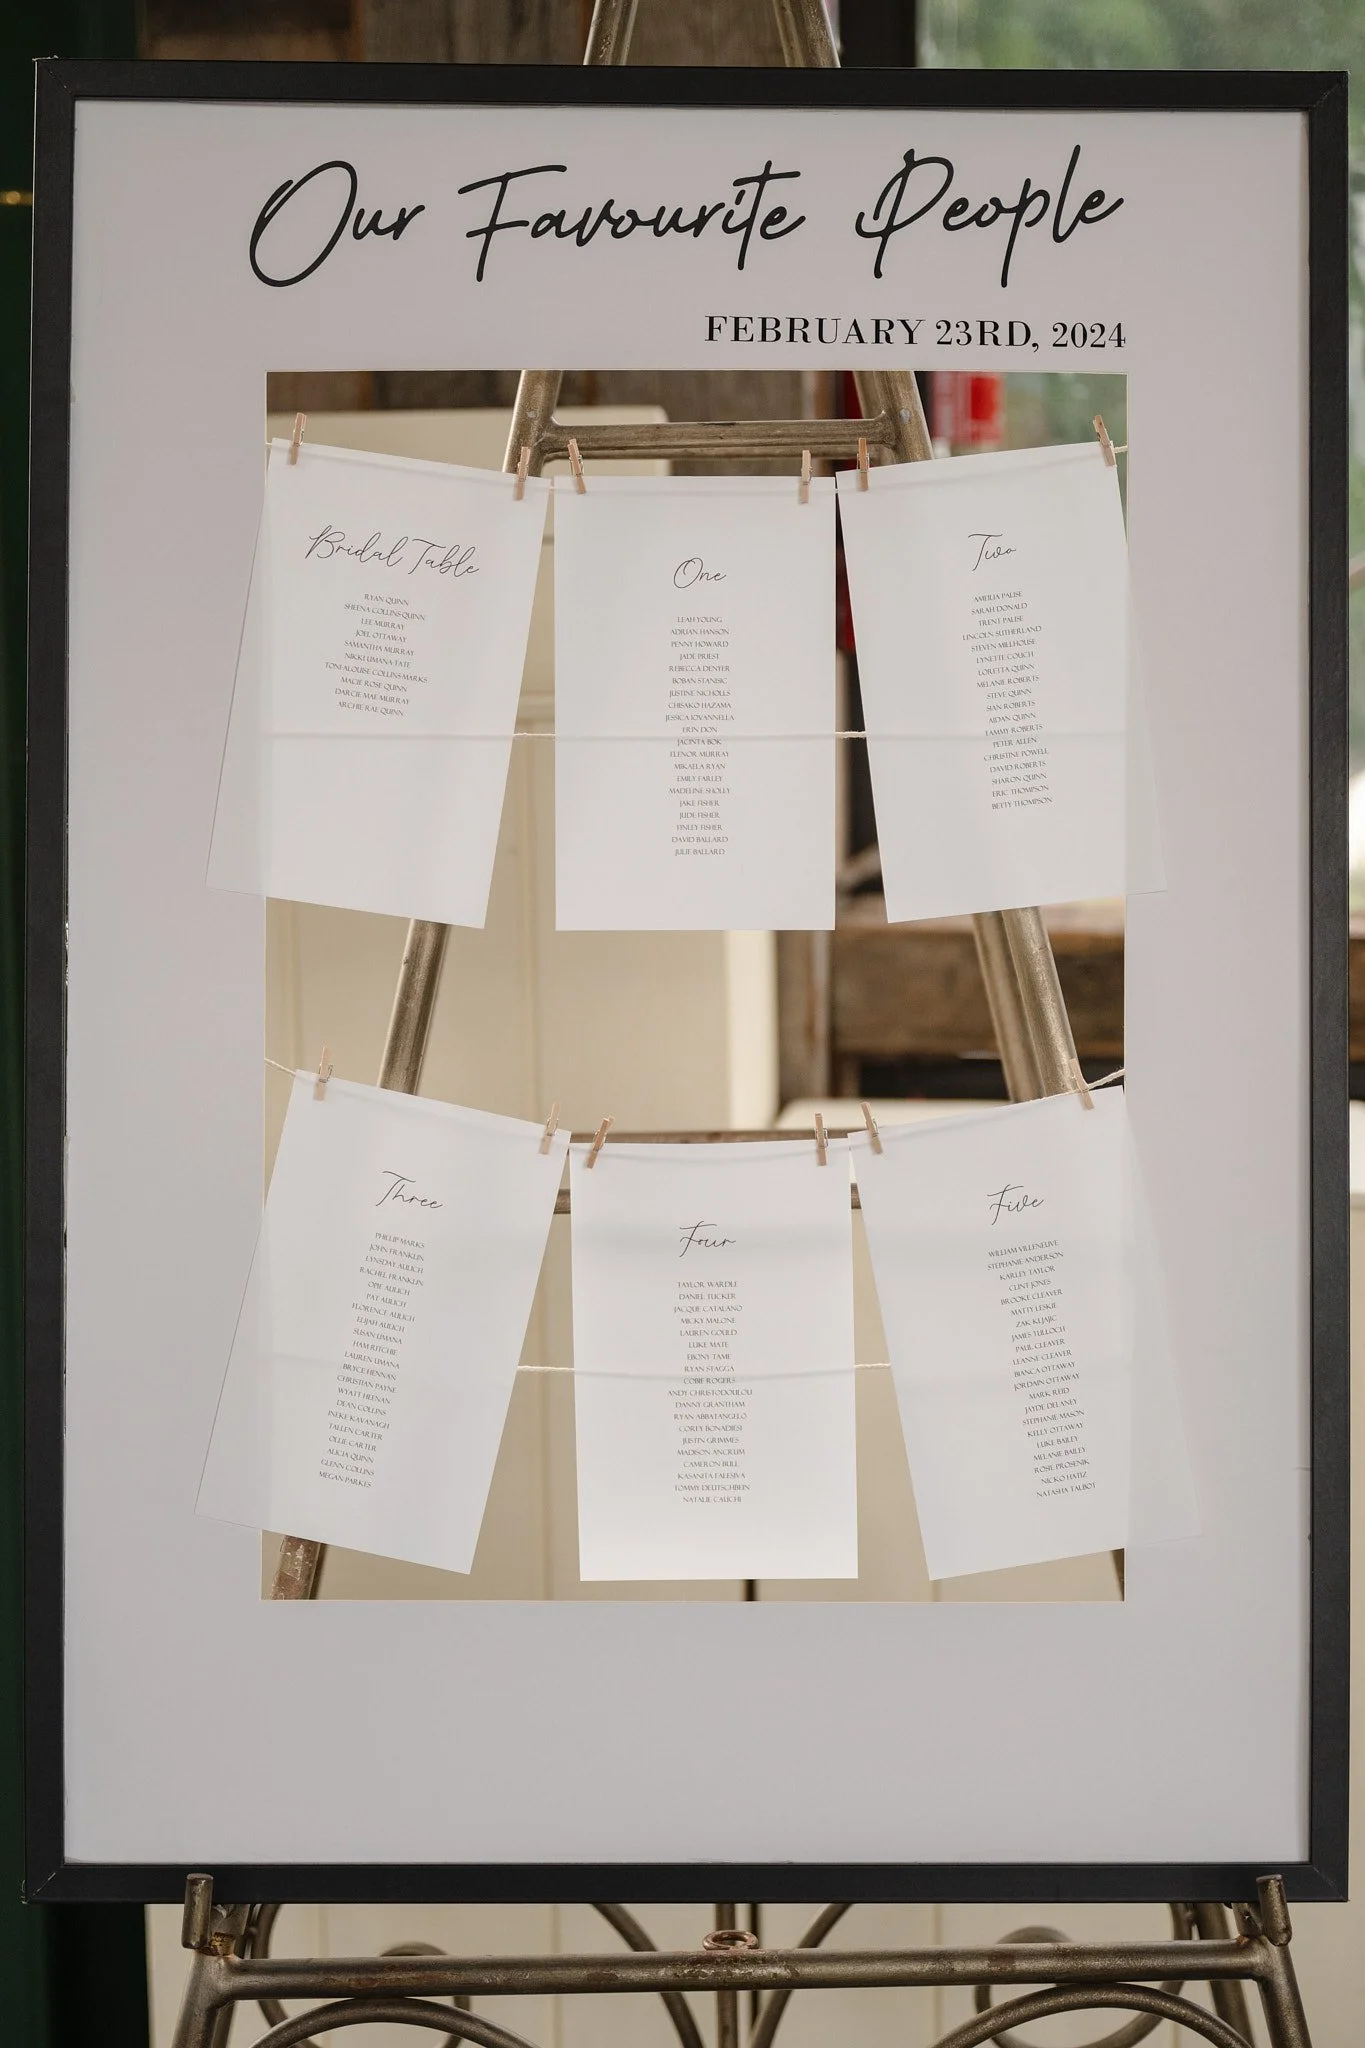 Our Favourite People
FEBRUARY 23RD, 2024
Bridal Table
RYAN QUINN
SHEENA COLLINS-QUINN
LEE MURRAY
JOEL OTTAWAY
SAMANTHA MURRAY
NIKKI UMANA TATE
TONI-ALOUISE COLLINS-MARKS
MACIE ROSE QUINN
DARCIE MAE MURRAY
ARCHIE RAE QUINN
One
LEAH YOUNG
ADRIAN HANSON
PENNY HOWARD
JADE PRIEST
REBECCA DENYER
BOBAN STANISIC
JUSTINE NICHOLLS
CHISAKO HAZAMA
JESSICA IOVANNELLA
ERIN DON
JACINTA BOK
ELENOR MURRAY
MIKAELA RYAN
EMILY FARLEY
MADELINE SHOLLY
JAKE FISHER
JUDE FISHER
FINLEY FISHER
DAVID BALLARD
JULIE BALLARD
Two
AMELIA PAUSE
SARAH DONALD
TRENT PAUSE
LINCOLN SUTHERLAND
STEVEN MILLHOUSE
LYNETTE COUCH
LORETTA QUINN
MELANIE ROBERTS
STEVE QUINN
SIAN ROBERTS
AIDAN QUINN
TAMMY ROBERTS
PETER ALLEN
CHRISTINE POWELL
DAVID ROBERTS
SHARON QUINN
ERIC THOMPSON
BETTY THOMPSON
Three
PHILLIP MARKS
JOHN FRANKLIN
LYNSDAY AULICH
RACHEL FRANKLIN
OPIE AULICH
PAT AULICH
FLORENCE AULICH
ELIJAH AULICH
SUSAN UMANA
HAM RITCHIE
LAUREN UMANA
BRYCE HENNAN
CHRISTIAN PAYNE
WYATT HEENAN
DEAN COLLINS
INEKE KAVANAGH
TALLEN CARTER
OLLIE CARTER
ALICIA QUINN
GLENN COLLINS
MEGAN PARKES
Four
TAYLOR WARDLE
DANIEL TUCKER
JACQUE CATALANO
MICKY MALONE
LAUREN GOULD
LUKE MATE
EBONY TAME
RYAN STAGGA
COBIE ROGERS
ANDY CHRISTODOULOU
DANNY GRANTHAM
RYAN ABBATANGELO
COREY BONADIESI
JUSTIN GRIMMES
MADISON ANCRUM
CAMERON BULL
KASANITA FALESIVA
TOMMY DEUTSCHBEIN
NATALIE CAUCHI
Five
WILLIAM VILLENEUVE
STEPHANIE ANDERSON
KARLEY TAYLOR
CLINT JONES
BROOKE CLEAVER
MATTY LESKIE
ZAK KLJAJIC
JAMES TULLOCH
PAUL CLEAVER
LEANNE CLEAVER
BIANCA OTTAWAY
JORDAIN OTTAWAY
MARK REID
JAYDE DELANEY
STEPHANIE MASON
KELLY OTTAWAY
LUKE BAILEY
MELANIE BAILEY
ROSIE PROSENIK
NICKO HATIZ
NATASHA TALBOT